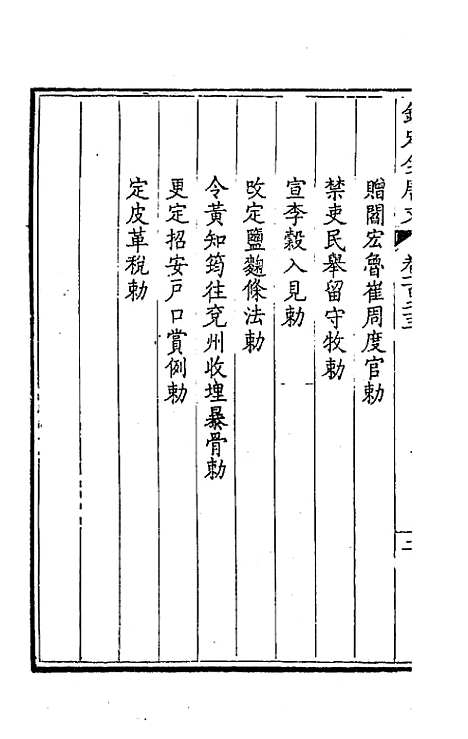 欽定全唐文
贈閻宏魯崔周度官勅
禁吏民舉留守牧勅
宣李穀入見勅
改定鹽麴條法勅
令黃知筠往兗州收埋暴骨勅
更定招安戸口賞例勅
定皮革稅勅